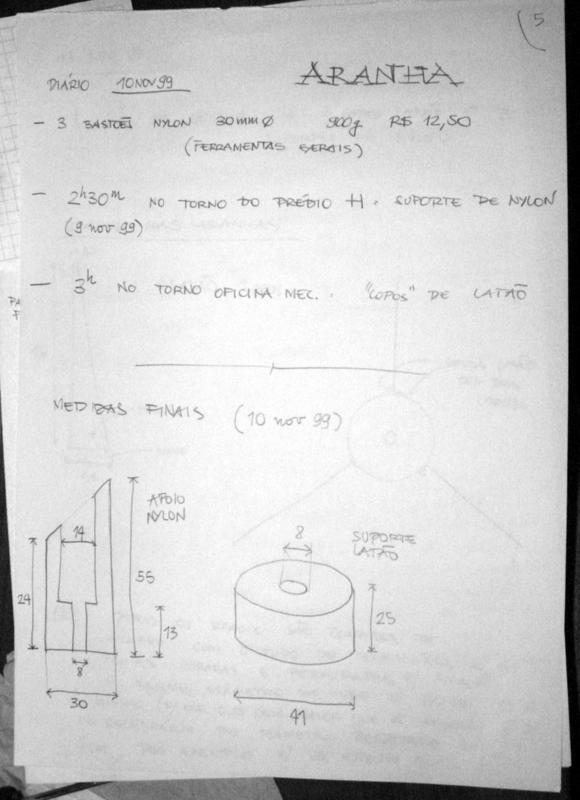 5
ARANHA
DIÁRIO 10NOV99
- 3 BASTÕES NYLON 30mmØ 900g R$ 12,50
(FERRAMENTAS GERAIS)
- 2h30m NO TORNO DO PRÉDIO H. SUPORTE DE NYLON
(9 nov 99)
- 3h NO TORNO OFICINA MEC. "COPOS" DE LATÃO
MEDIDAS FINAIS (10 nov 99)
APOIO
NYLON
14
24
55
13
8
30
SUPORTE
LATÃO
8
25
41